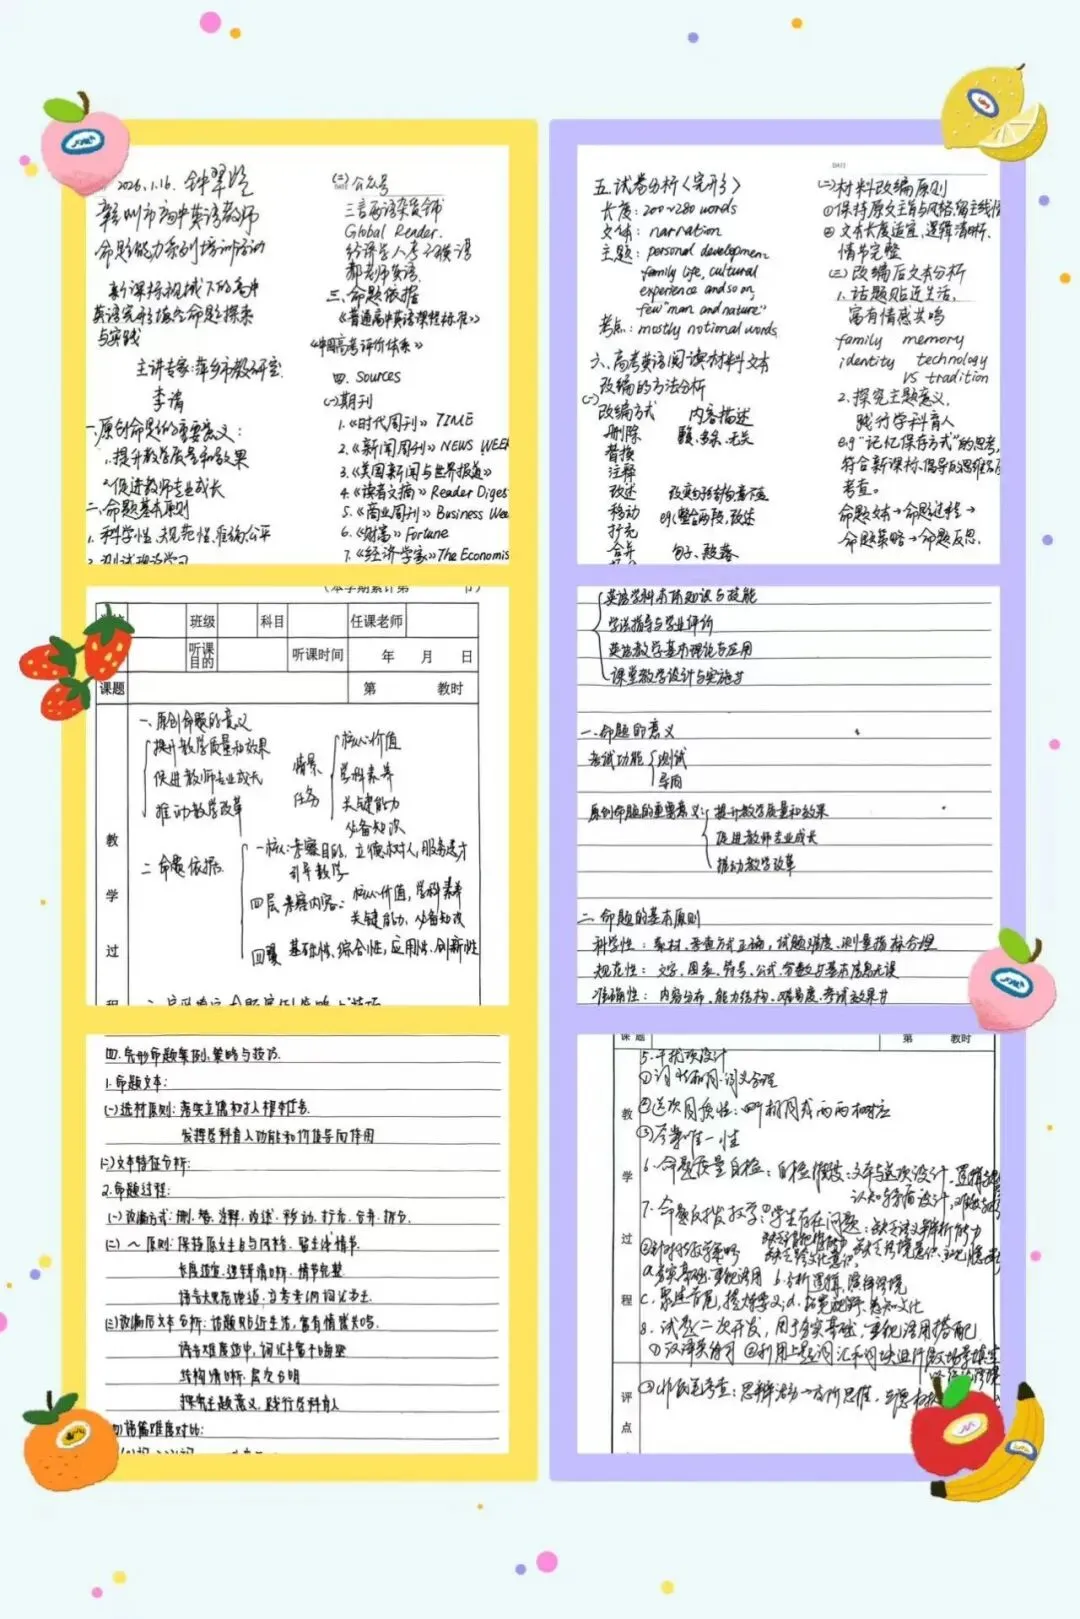 2026.1.16.
赣州市高中英语教师
命题能力系列培训活动
新课标视域下的高中
英语完形填空命题探索
与实践
主讲专家:萍乡市教研室
李清
一.原创命题的重要意义:
1.提升教学质量和效果
2.促进教师专业成长
二.命题基本原则
1.科学性、规范性、准确、公平
(二)公众号
三言两语杂货铺
Global Reader.
郝老师英语.
三.命题依据
《普通高中英语课程标准》
《中国高考评价体系》
四. Sources
(一)期刊
1.《时代周刊》 TIME
2.《新闻周刊》 NEWS WEE
3.《美国新闻与世界报道》
4.《读者文摘》 Reader Diges
5.《商业周刊》 Business Wee
6.《财富》 Fortune
7.《经济学家》The Economis
五.试卷分析(完形)
长度: 200~280 words
文体: narration
主题: personal developmen
family life, cultural
experience and so on,
few "man and nature"
考点: mostly notional words
六、高考英语阅读材料文本
改编的方法分析
(一)
改编方式 内容描述
删除
替换
注释
改述
移动 eg(整合两段,改述
扩充
合并 句子、段落
DATE
(二)材料改编原则
①保持原文主旨与风格,留主线情
②文本长度适宜、逻辑清晰、
情节完整
(三)改编后文本分析
1.话题贴近生活,
富有情感共鸣
family memory
identity technology
VS tradition
2.探究主题意义,
践行学科育人
e.g "记忆保存方式"的思考,
符合新课标倡导的思维
考查。
命题文本→命题过程→
命题策略→命题反思.
(本学期累计第 节)
班级 科目 任课老师
听课目的 听课时间 年 月 日
课题 第 教时
教学过程
一、原创命题的意义
提升教学质量和效果
促进教师专业成长
推动教学改革
情景
任务
核心价值
学科素养
关键能力
必备知识
二 命题依据
一核:考察目的,立德树人,服务选才
引导教学
四层 考察内容:核心价值,学科素养
关键能力,必备知识
四翼 基础性,综合性,应用性,创新性
英语学科本体知识与技能
学法指导与学业评价
英语教学基本理论与应用
课堂教学设计与实施
一.命题的意义
考试功能 测试
导向
原创命题的重要意义: 提升教学质量和效果
促进教师专业成长
推动教学改革
二.命题的基本原则
科学性: 素材、考查方式正确,试题难度、测量指标合理
规范性: 文字、图表、符号、公式、分数与基本信息无误
准确性: 内容分布、能力结构、难易度、考试效果
四.完形命题案例,策略与技巧.
1.命题文本:
(一)选材原则:落实立德树人根本任务.
发挥学科育人功能和价值导向作用
(二)文本特征分析:
2.命题过程:
(一)改编方式:删、替、注释、改述、移动、扩充、合并、拆分.
(二) ~ 原则:保持原文主旨与风格,留主体情节.
长度适宜,逻辑清晰,情节完整.
(三)改编后文本分析:话题贴近生活,富有情感共鸣.
语言难度适中,词汇丰富不晦涩
结构清晰,层次分明
探究主题意义,践行学科育人
(四)语篇难度对比:
课题 第 教时
教学过程
评点
5.干扰项设计
①词性相同,词义合理
②选项同质性:四个相同或两两相应
③答案唯一性
6.命题质量自检:自检维度:文本与选项设计、逻辑
7.命题反拨教学:①学生存在问题:缺乏语义辨析能力
a.夯实基础,重视语用 b.分析逻辑,演绎语境
8.试题二次开发,用于夯实基础,重视语用搭配
①汉译英练习